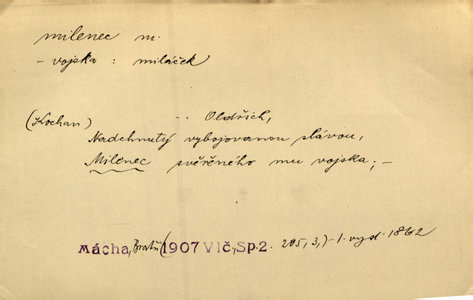 milenec m.
- vojska : miláček
(Kochan) .. Oldřich,
Nadchnutý vybojovanou slávou,
Milenec svěřeného mu vojska; –
Mácha, Bratři (1907 Vlč, Sp.2. 285, 3,) - 1. vyd. 1862